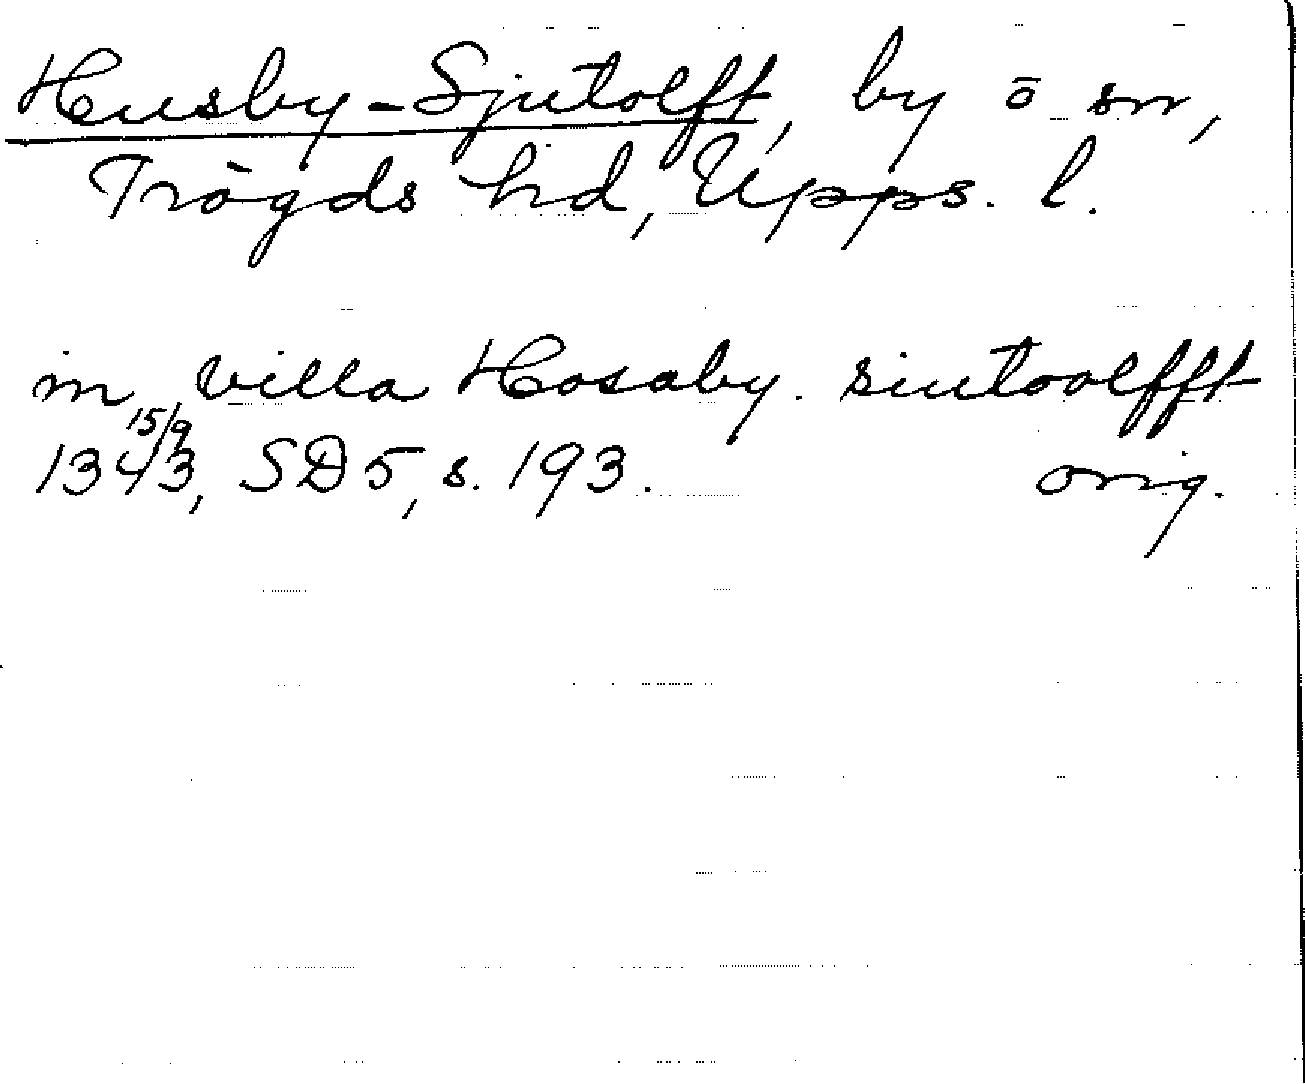 Husby-Sjutolft, by ō sn,
Trögds hd, Upps. l.
in villa Hosaby. siutoolfft
15/9
1343, SD 5, s. 193. orig.